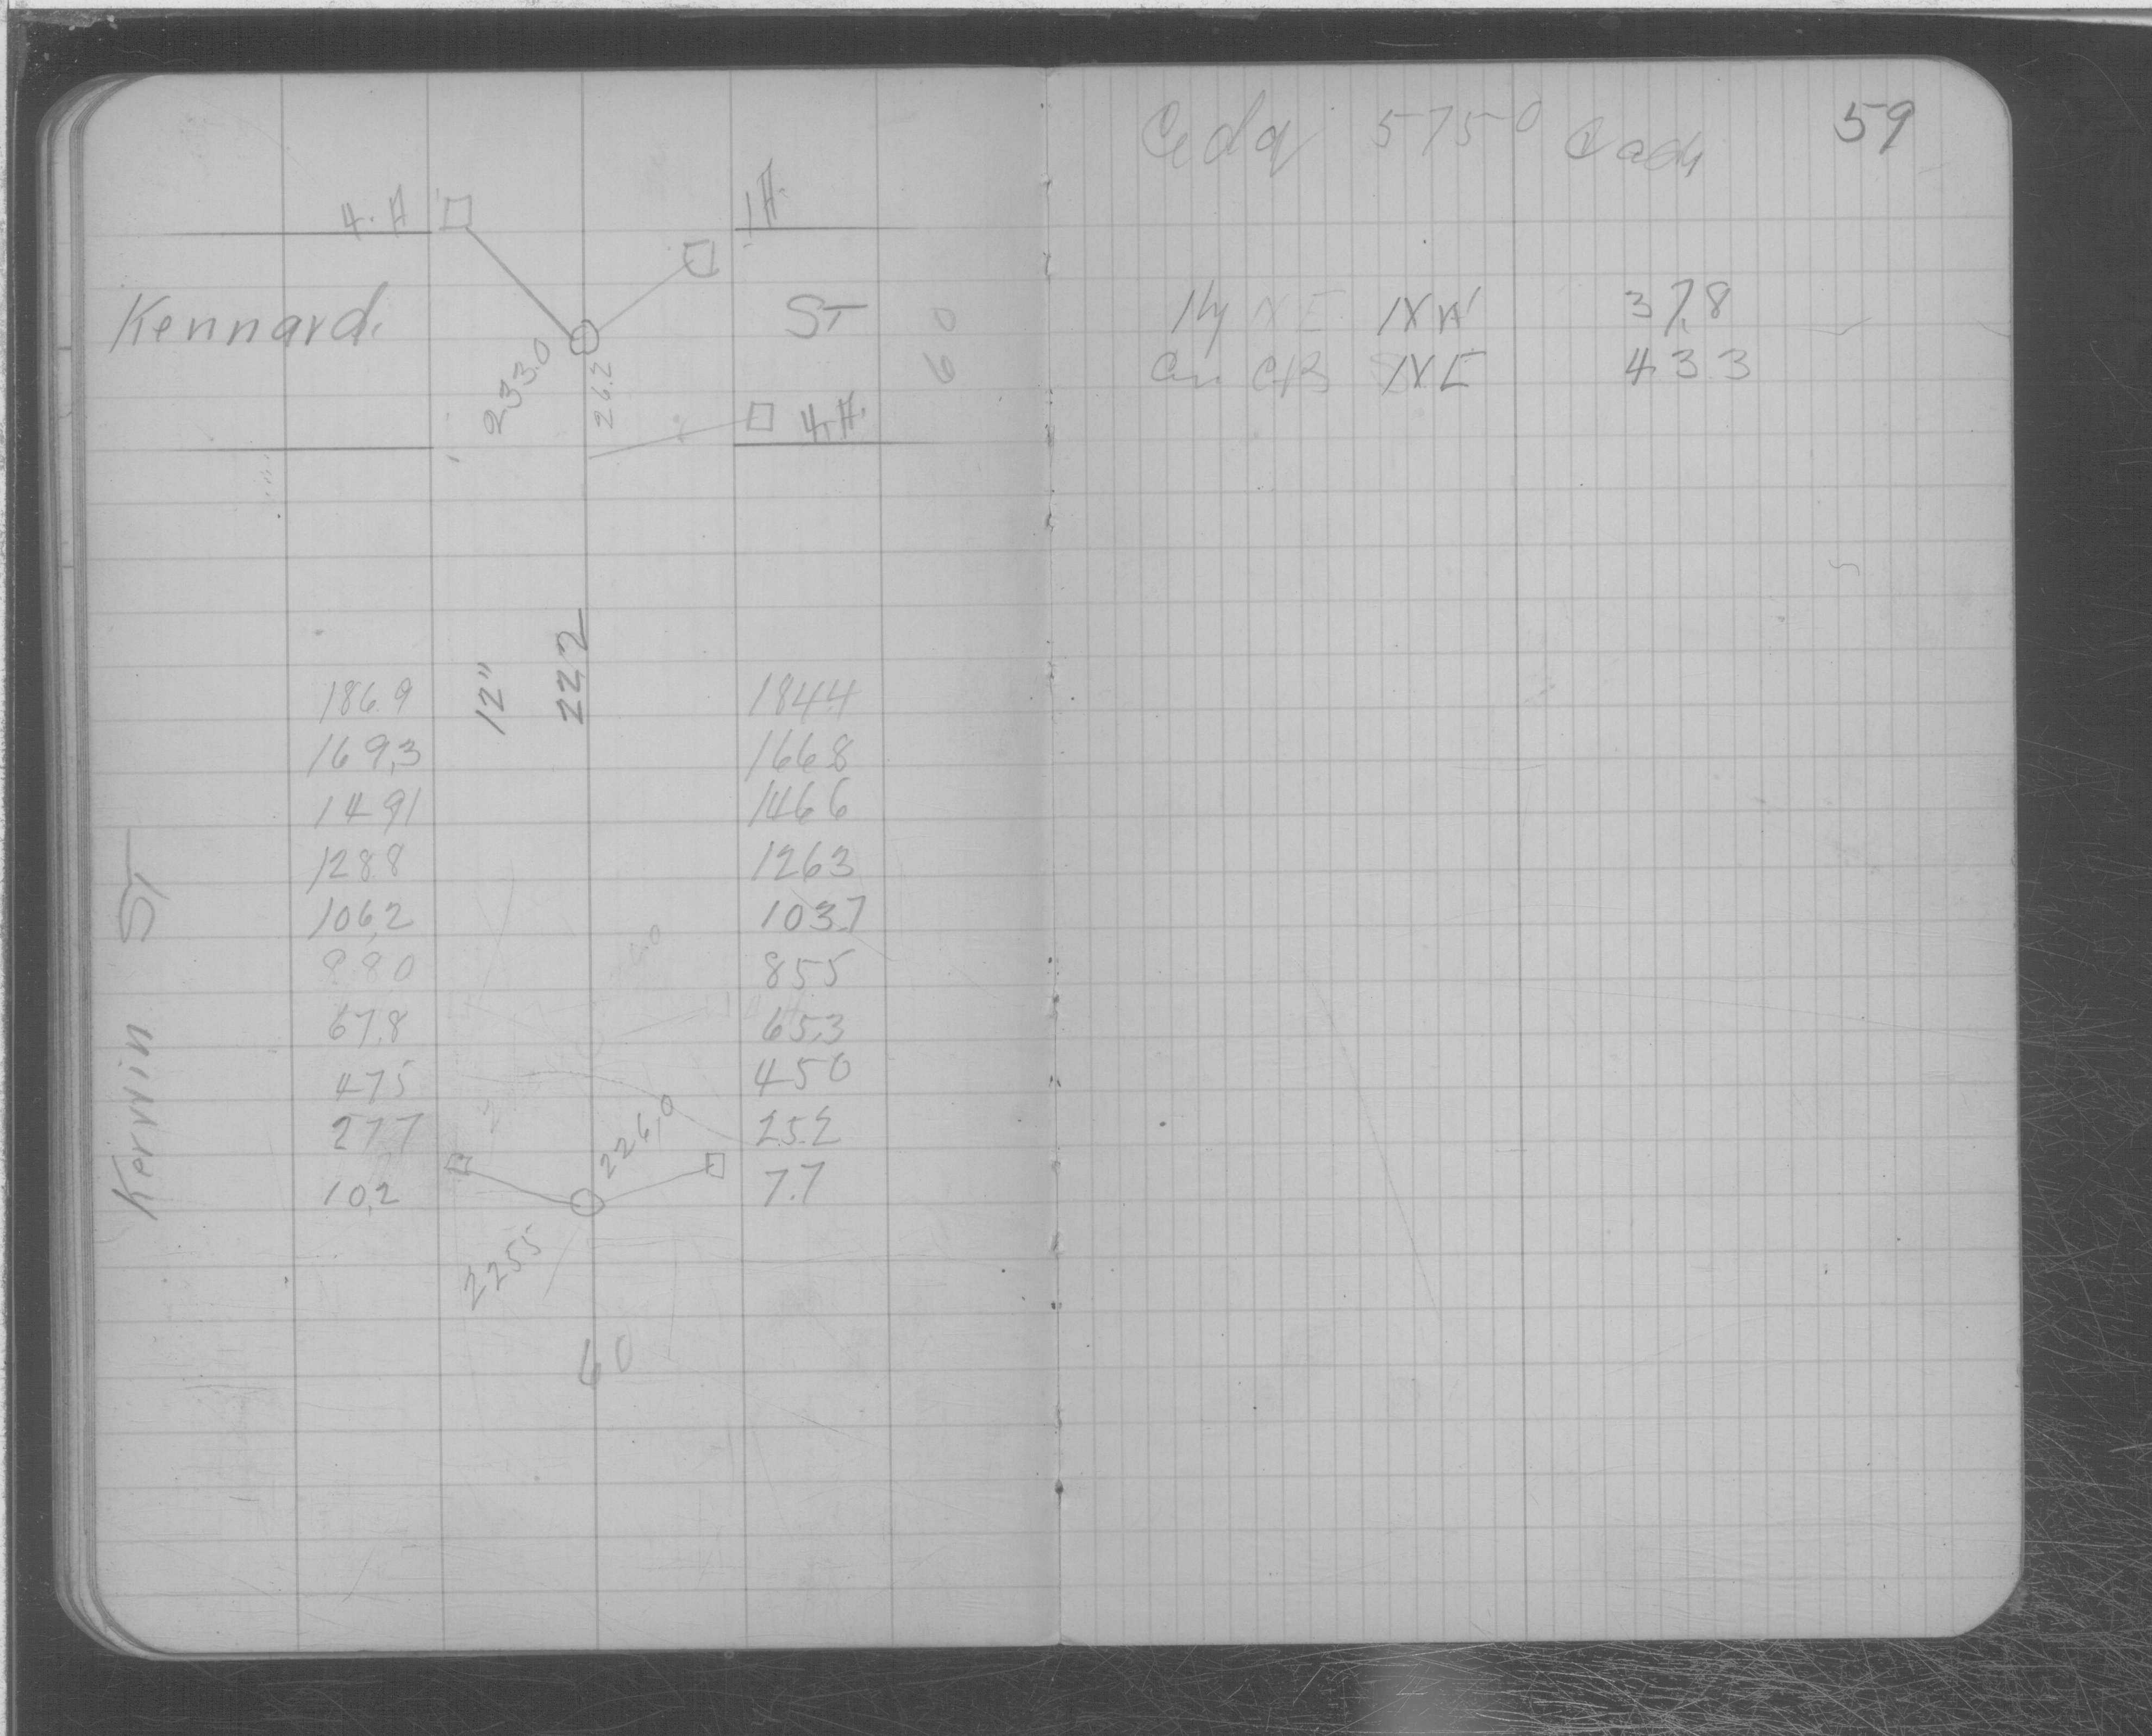 4.H 1H.
Kennard. ST
233.0
26.2
60
4.H.
12" 222
186.9 1844
169,3 1668
1491 1466
1288 1263
106,2 103.7
880 855
67.8 65.3
475 450
277 25.2
10,2 7.7
Kerwin ST
226,0
2255
60
5750
59
NW 37.8
C/B NE 43.3